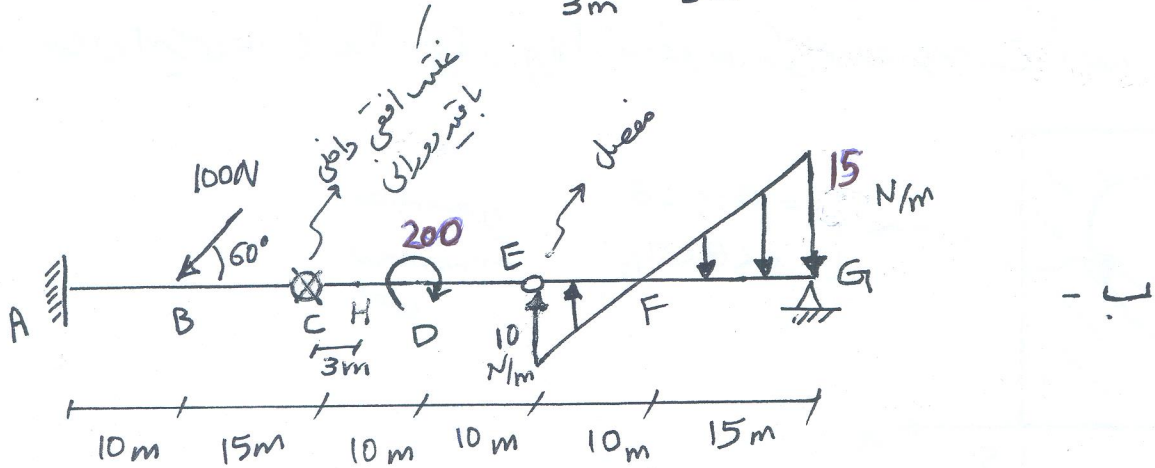 3m
غلتک افقی داخلی
با قید دورانی
مفصل
100N
60°
200
15
N/m
ب -
A
B
C
H
D
E
F
G
3m
10
N/m
10m
15m
10m
10m
10m
15m